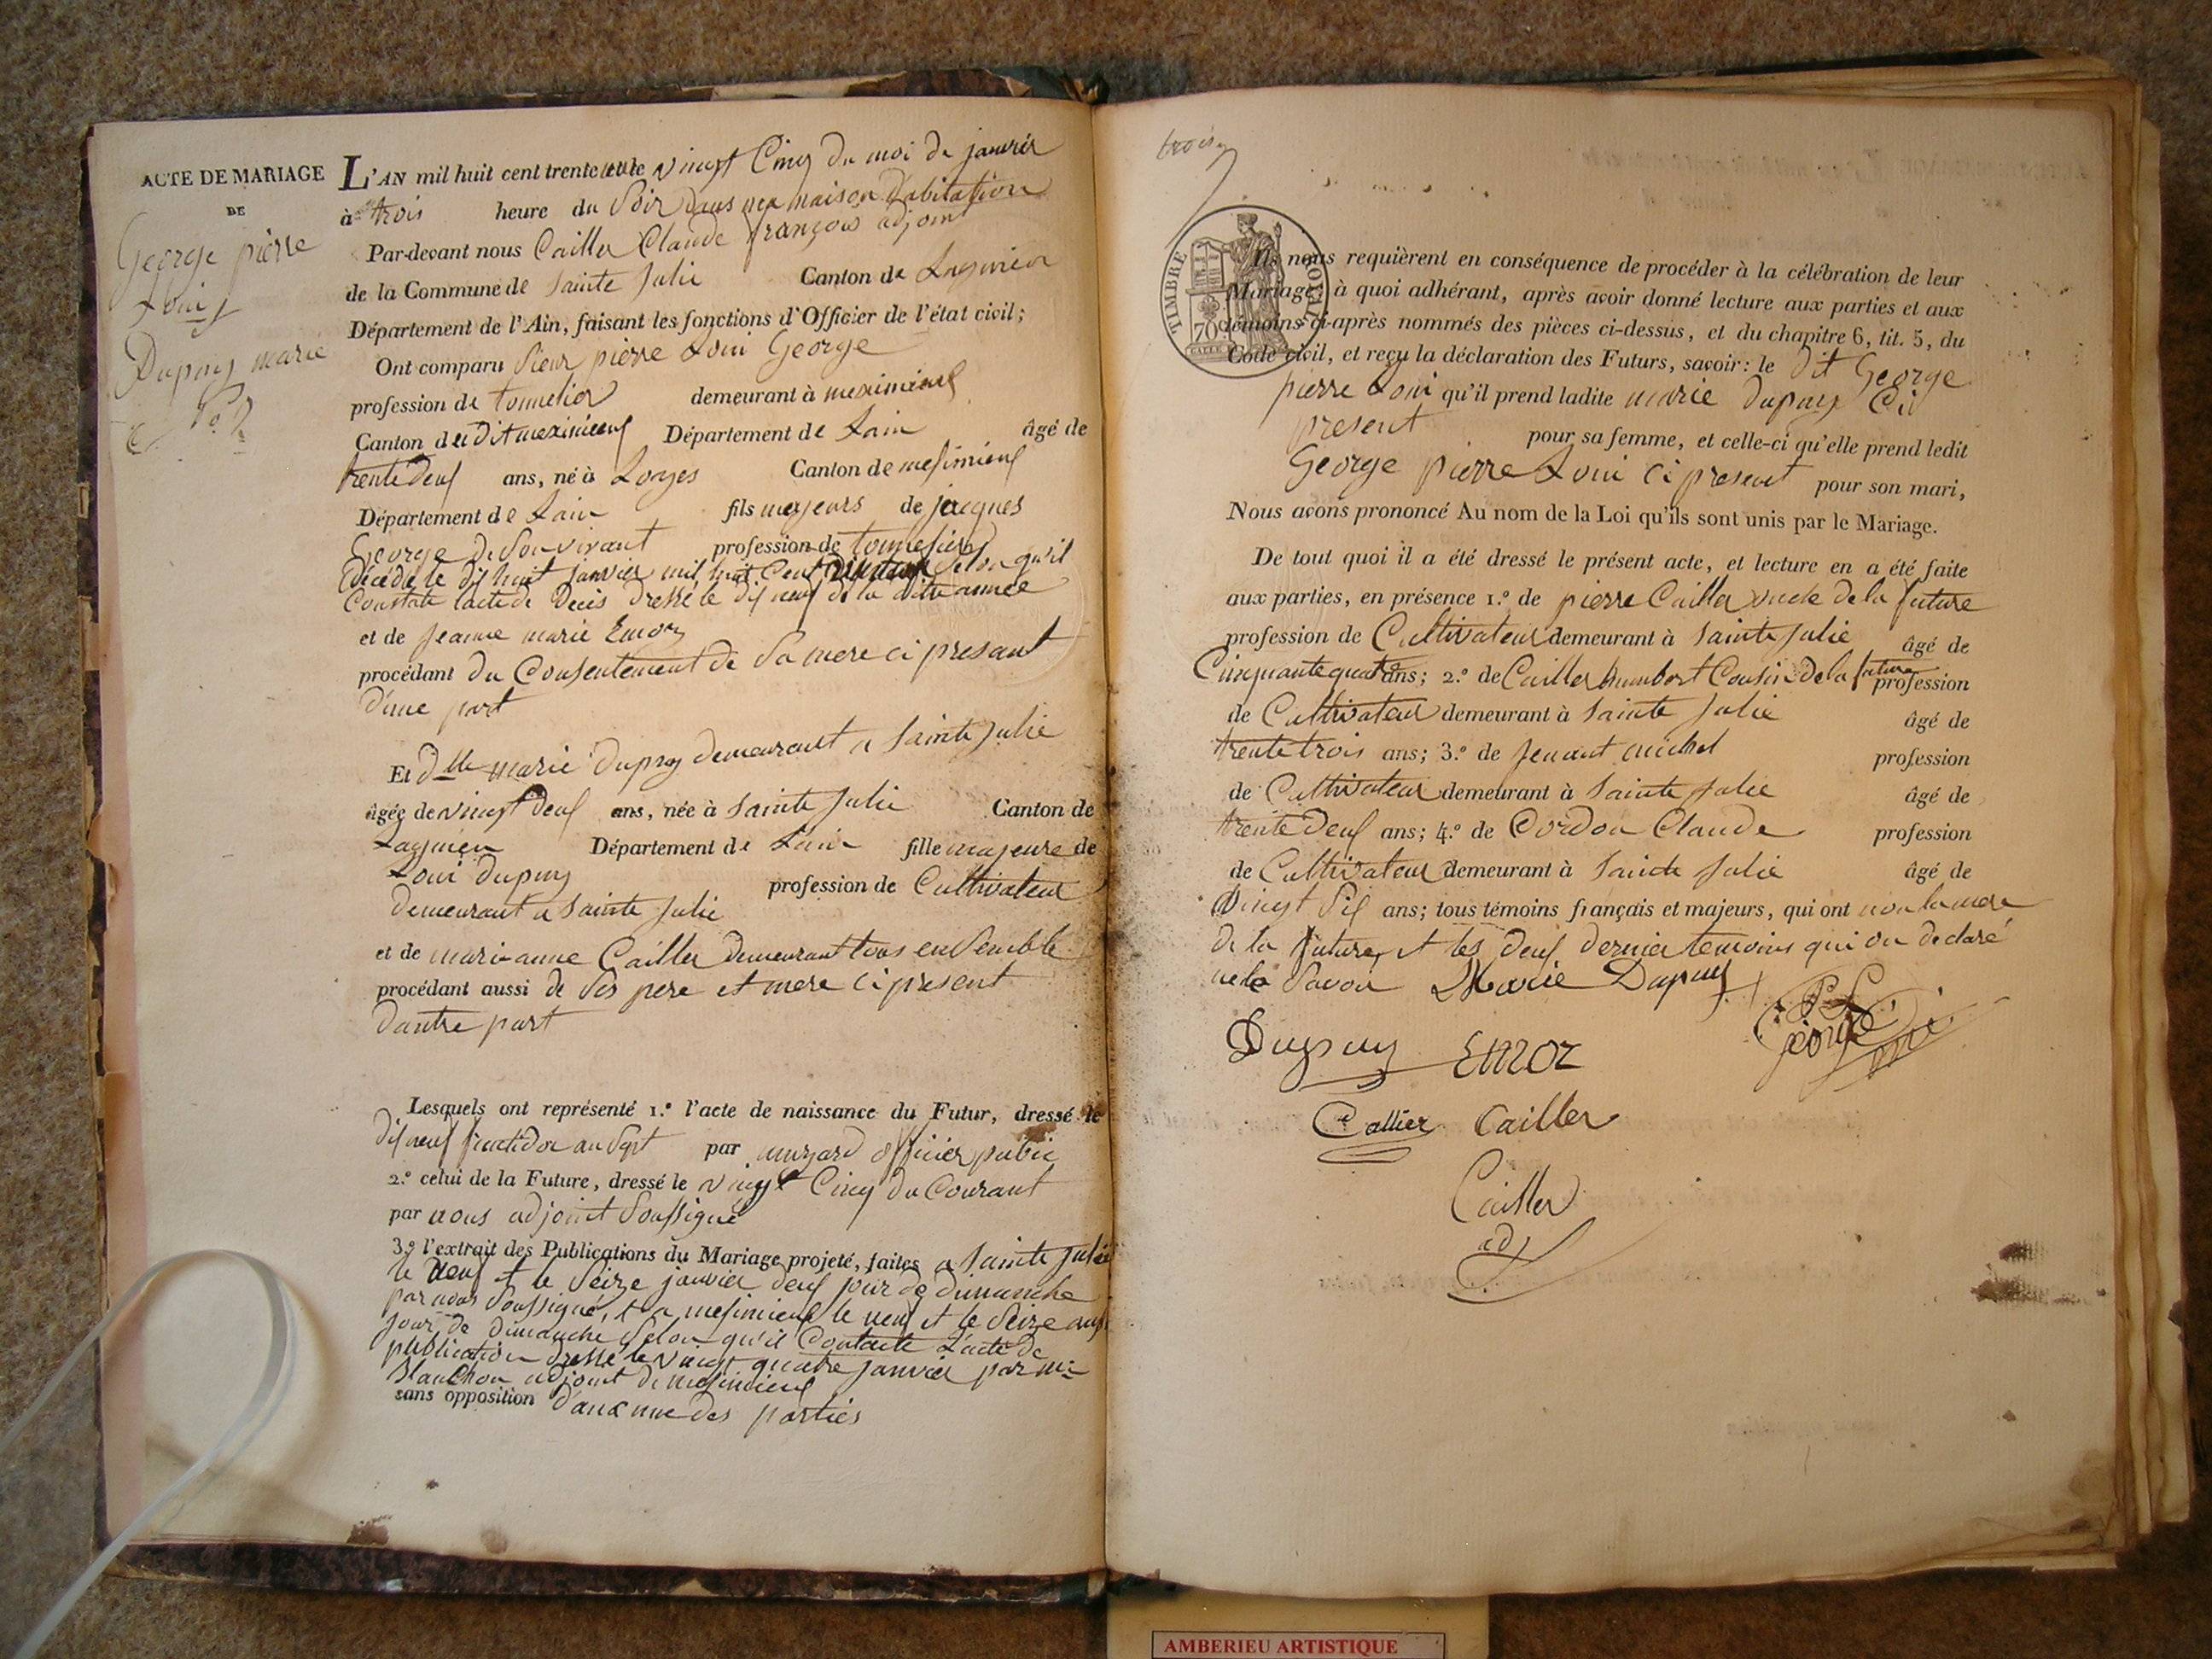 ACTE DE MARIAGE
DE
George pierre
Loui
Dupuy marie
N.o 2
L'AN mil huit cent trente une le vingt Cinq du moi de janvier
à trois heure du Soir dans ma maison d'abitation
Par-devant nous Cailler Claude françois adjoint
de la Commune de Sainte Julie Canton de Lagnieu
Département de l'Ain, faisant les fonctions d'Officier de l'état civil;
Ont comparu Sieur pierre Loui George
profession de tonnelier demeurant à meximieux
Canton du dit meximieux Département de Lain âgé de
trente deux ans, né à Loyes Canton de mesimieux
Département de Lain fils majeurs de jacques
George de Son vivant profession de tonnelier
décédé le dix huit janvier mil huit Cent Selon qu'il
Constate l'acte de décès dressé le dix neuf de la dite année
et de Jeanne marie Emoz
procédant du Consentement de Sa mere ci presant
d'une part
Et dlle marie Dupuy demeurant a Sainte Julie
âgée de vingt deux ans, née à Sainte Julie Canton de
Lagnieu Département de Lain fille majeure de
Loui Dupuy profession de Cultivateur
demeurant a Sainte Julie
et de mari-anne Cailler demeurant tous enSemble
procédant aussi de Ses pere et mere ci present
dautre part
Lesquels ont représenté 1.º l'acte de naissance du Futur, dressé le
dix neuf fructidor an Sept par officier pubic
2.º celui de la Future, dressé le vingt Cinq du Courant
par nous adjoint Soussigné
3.º l'extrait des Publications du Mariage projeté, faites a Sainte Julie
le neuf et le Seize janvier deux jour de dimanche
par nous Soussigné, et a mesimieux le neuf et le Seize aussi
jour de dimanche Selon qu'il Contaste L'acte de
publication dressé le vingt quatre janvier par mr
Blanchon adjoint de mesimieux
sans opposition d'aucune des parties
trois
TIMBRE ROYAL
70 c
Ils nous requièrent en conséquence de procéder à la célébration de leur
Mariage; à quoi adhérant, après avoir donné lecture aux parties et aux
témoins ci-après nommés des pièces ci-dessus, et du chapitre 6, tit. 5, du
Code civil, et reçu la déclaration des Futurs, savoir: le dit George
pierre Loui qu'il prend ladite marie dupuy Ci
present pour sa femme, et celle-ci qu'elle prend ledit
George pierre Loui ci present pour son mari,
Nous avons prononcé Au nom de la Loi qu'ils sont unis par le Mariage.
De tout quoi il a été dressé le présent acte, et lecture en a été faite
aux parties, en présence 1.º de pierre Cailler oncle de la future
profession de Cultivateur demeurant à Sainte Julie âgé de
Cinquante quatre ans; 2.º de Cailler humbert Cousin de la future profession
de Cultivateur demeurant à Sainte Julie âgé de
trente trois ans; 3.º de Jenant michel profession
de Cultivateur demeurant à Sainte Julie âgé de
trente deux ans; 4.º de Cordon Claude profession
de Cultivateur demeurant à Sainte Julie âgé de
Vingt Six ans; tous témoins français et majeurs, qui ont non la mere
de la future, et les deux dernier temoins qui on declaré
ne le Savoir Marie Dupuy
Dupuy Emoz George
Callier Cailler
Cailler
adj
AMBERIEU ARTISTIQUE